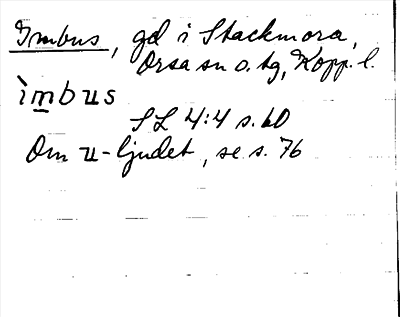 Imbus, gd i Stackmora,
Orsa sn o. tg, Kopp. l.
ìmbus
SL 4:4 s. 60
Om u-ljudet, se s. 76